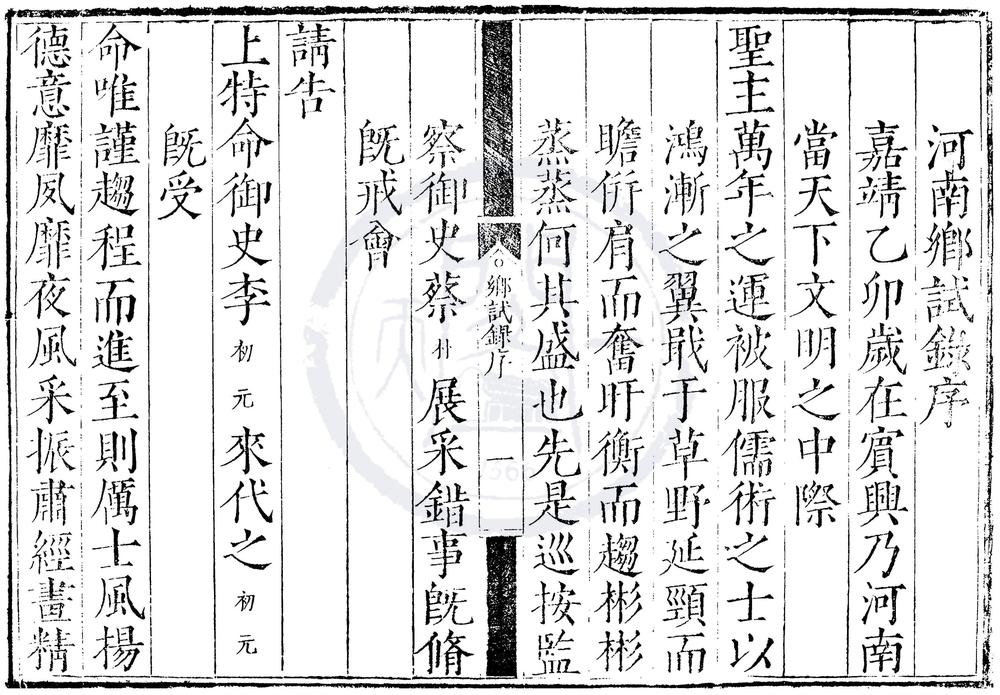 河南鄉試錄序
嘉靖乙卯歲在賓興乃河南
當天下文明之中際
聖主萬年之運被服儒術之士以
鴻漸之翼戢于草野延頸而
瞻俯肩而奮盱衡而趨彬彬
蒸蒸何其盛也先是巡按監
鄉試錄序 一
察御史蔡朴展采錯事旣脩
旣戒會
請告
上特命御史李初元來代之初元
旣受
命唯謹趨程而進至則厲士風揚
德意靡夙靡夜風采振肅經畫精